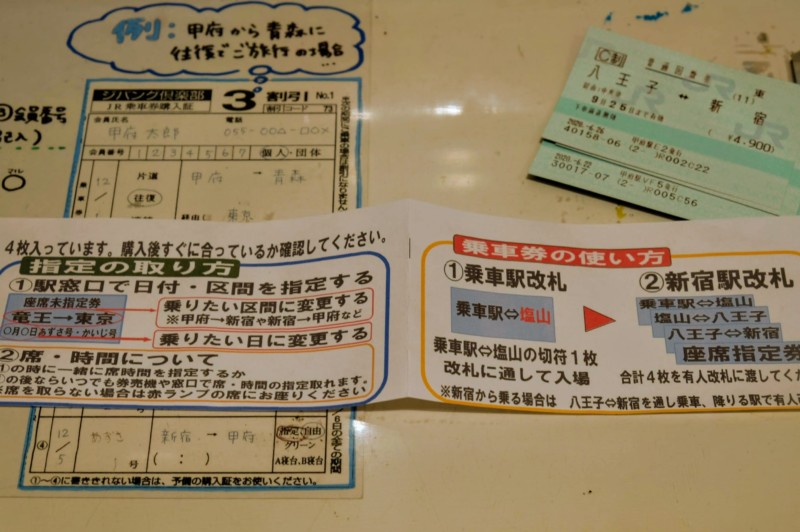 例：甲府から青森に
往復でご旅行の場合
会員番号
記入)
ジパング倶楽部
JR乗車券購入証
3° 割引 No.1
割引コード 73
会員氏名 電話
甲府 太郎 055-000-00××
会員番号 1 2 3 4 5 6 7 個人・団体
乗車券
12
1
片道
往復
甲府 → 青森
経由
東京
C制
普通回数券
東
八王子 ↔ 新宿
(11)
9月25日まで有効
(¥4,900)
2020.-6.26
40158-06
002C22
30017-07
005C56
4枚入っています。購入後すぐに合っているか確認してください。
指定の取り方
①駅窓口で日付・区間を指定する
座席未指定券
竜王→東京
○月○日あずさ号・かいじ号
乗りたい区間に変更する
※甲府→新宿や新宿→甲府など
乗りたい日に変更する
②席・時間について
①の時に一緒に席時間を指定するか
①の後ならいつでも券売機や窓口で席・時間の指定取れます。
※席を取らない場合は赤ランプの席にお座りください
乗車券の使い方
①乗車駅改札
乗車駅⇔塩山
乗車駅⇔塩山の切符1枚
改札に通して入場
②新宿駅改札
乗車駅⇔塩山
塩山⇔八王子
八王子⇔新宿
座席指定券
合計4枚を有人改札に渡してくだ
※新宿から乗る場合は 八王子⇔新宿を通し乗車、降りる駅で有人改
④
12
5
あずさ
1号
新宿 → 甲府
( : )
指定・自由
グリーン
A寝台、B寝台
①〜④に書ききれない場合は、予備の購入証をお使いください。